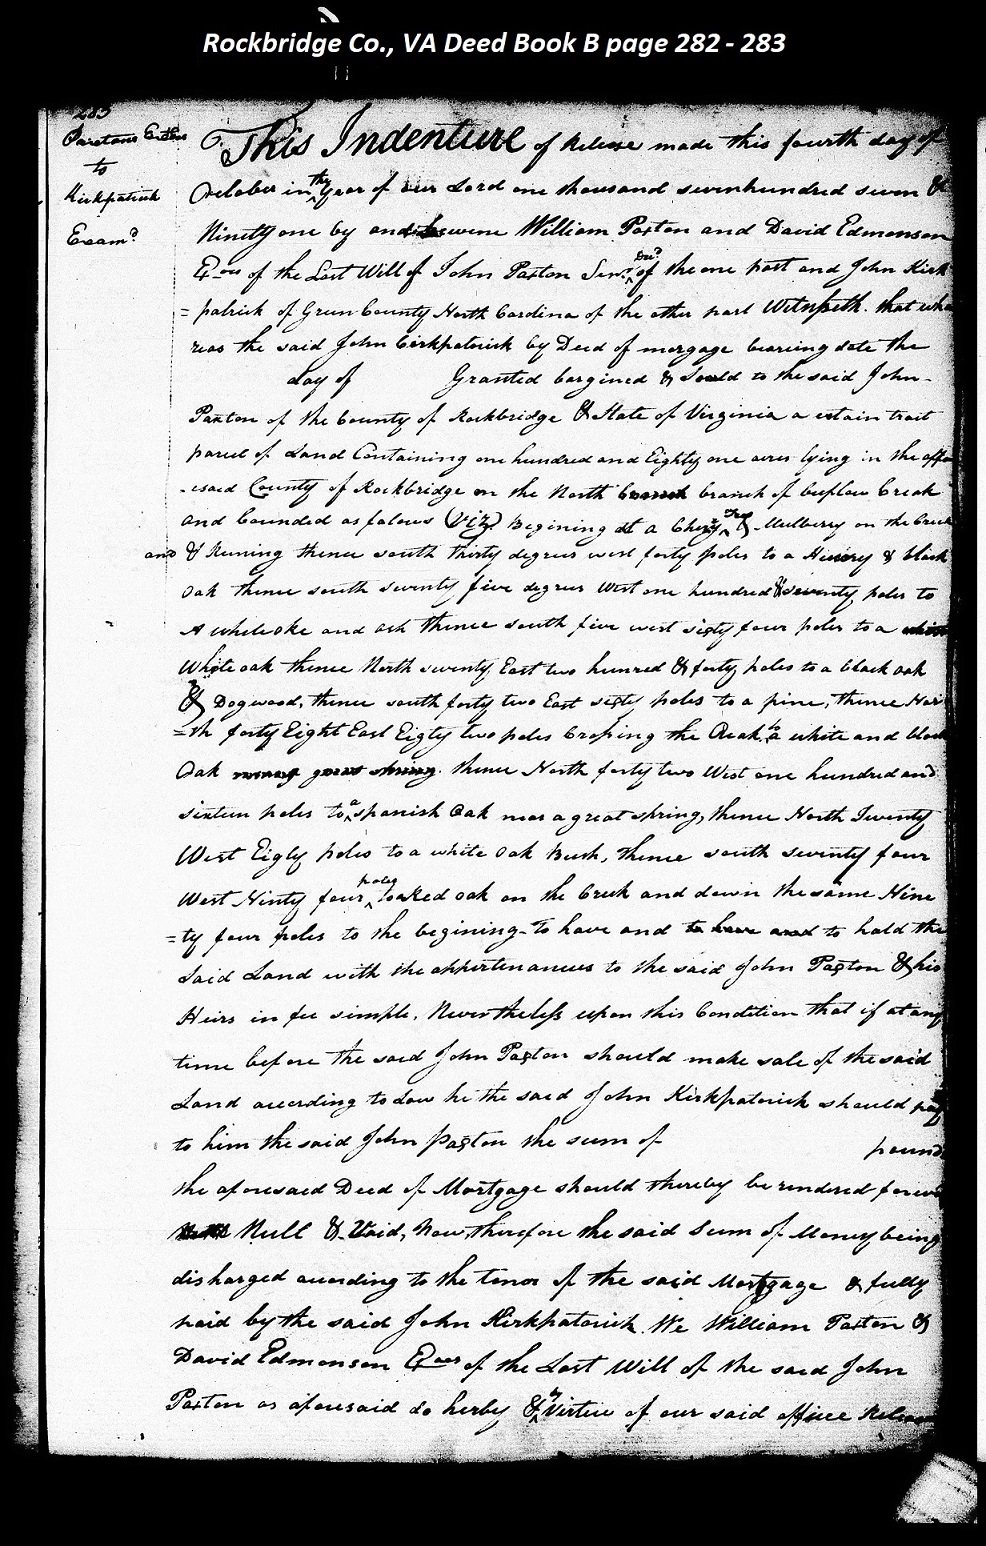 Rockbridge Co., VA Deed Book B page 282 - 283
283
Paxtons Exters
to
Kirkpatrick
Examd
This Indenture of Release made this fourth day of
October in the year of our Lord one thousand sevenhundred seven &
Ninety one by and William Paxton and David Edmonson
Exors of the Last Will of John Paxton Senr Decd of the one part and John Kirk
= patrick of Green County North Carolina of the other part Witnesseth. that whe
reas the said John Kirkpatrick by Deed of morgage bearing date the
day of Granted bargined & Sould to the said John
Paxton of the County of Rockbridge & State of Virginia a certain trait
parcel of Land Containing one hundred and Eighty one acres lying in the affo
- esaid County of Rockbridge on the North branch of buflow Creak
and bounded as falows (Viz) Begining at a Chery Tree & Mulberry on the Creek
and & Runing thence south thirty degrees west forty poles to a Hickory & black
oak thence south seventy five degrees West one hundred & seventy poles to
A white oke and ash thence south five west sixty four poles to a
White oak thence North seventy East two hunred & forty poles to a black oak
& Dogwood, thence south forty two East sixty poles to a pine, thence Nor
=th forty Eight East Eigty two poles Crossing the Creak to a white and black
Oak thence North forty two West one hundred and
sixteen poles to a spanish Oak near a great spring, thence North Twenty
West Eigty poles to a white Oak Bush, thence south seventy four
West Ninty four poles to a Red oak on the Creek and down the same Nine
=ty four poles to the begining - To have and to hold the
Said Land with the appertenances to the said John Paxton & his
Heirs in fee simple. Nevertheless upon this Condition that if at any
time before the said John Paxton should make sale of the said
Land according to Law he the said John Kirkpatrick should pay
to him the said John Paxton the sum of pounds
the aforesaid Deed of Mortgage should thereby be rendered forever
Null & Void, Now, therefore the said Sum of Money being
disharged acording to the tenor of the said Mortgage & fully
paid by the said John Kirkpatrick We William Paxton &
David Edmonson Exors of the Last Will of the said John
Paxton as aforesaid do herby & by Virtue of our said office Release